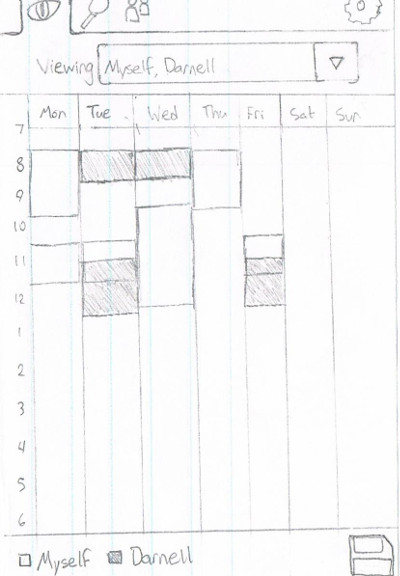 Viewing Myself, Darnell
Mon Tue Wed Thu Fri Sat Sun
7
8
9
10
11
12
1
2
3
4
5
6
Myself Darnell